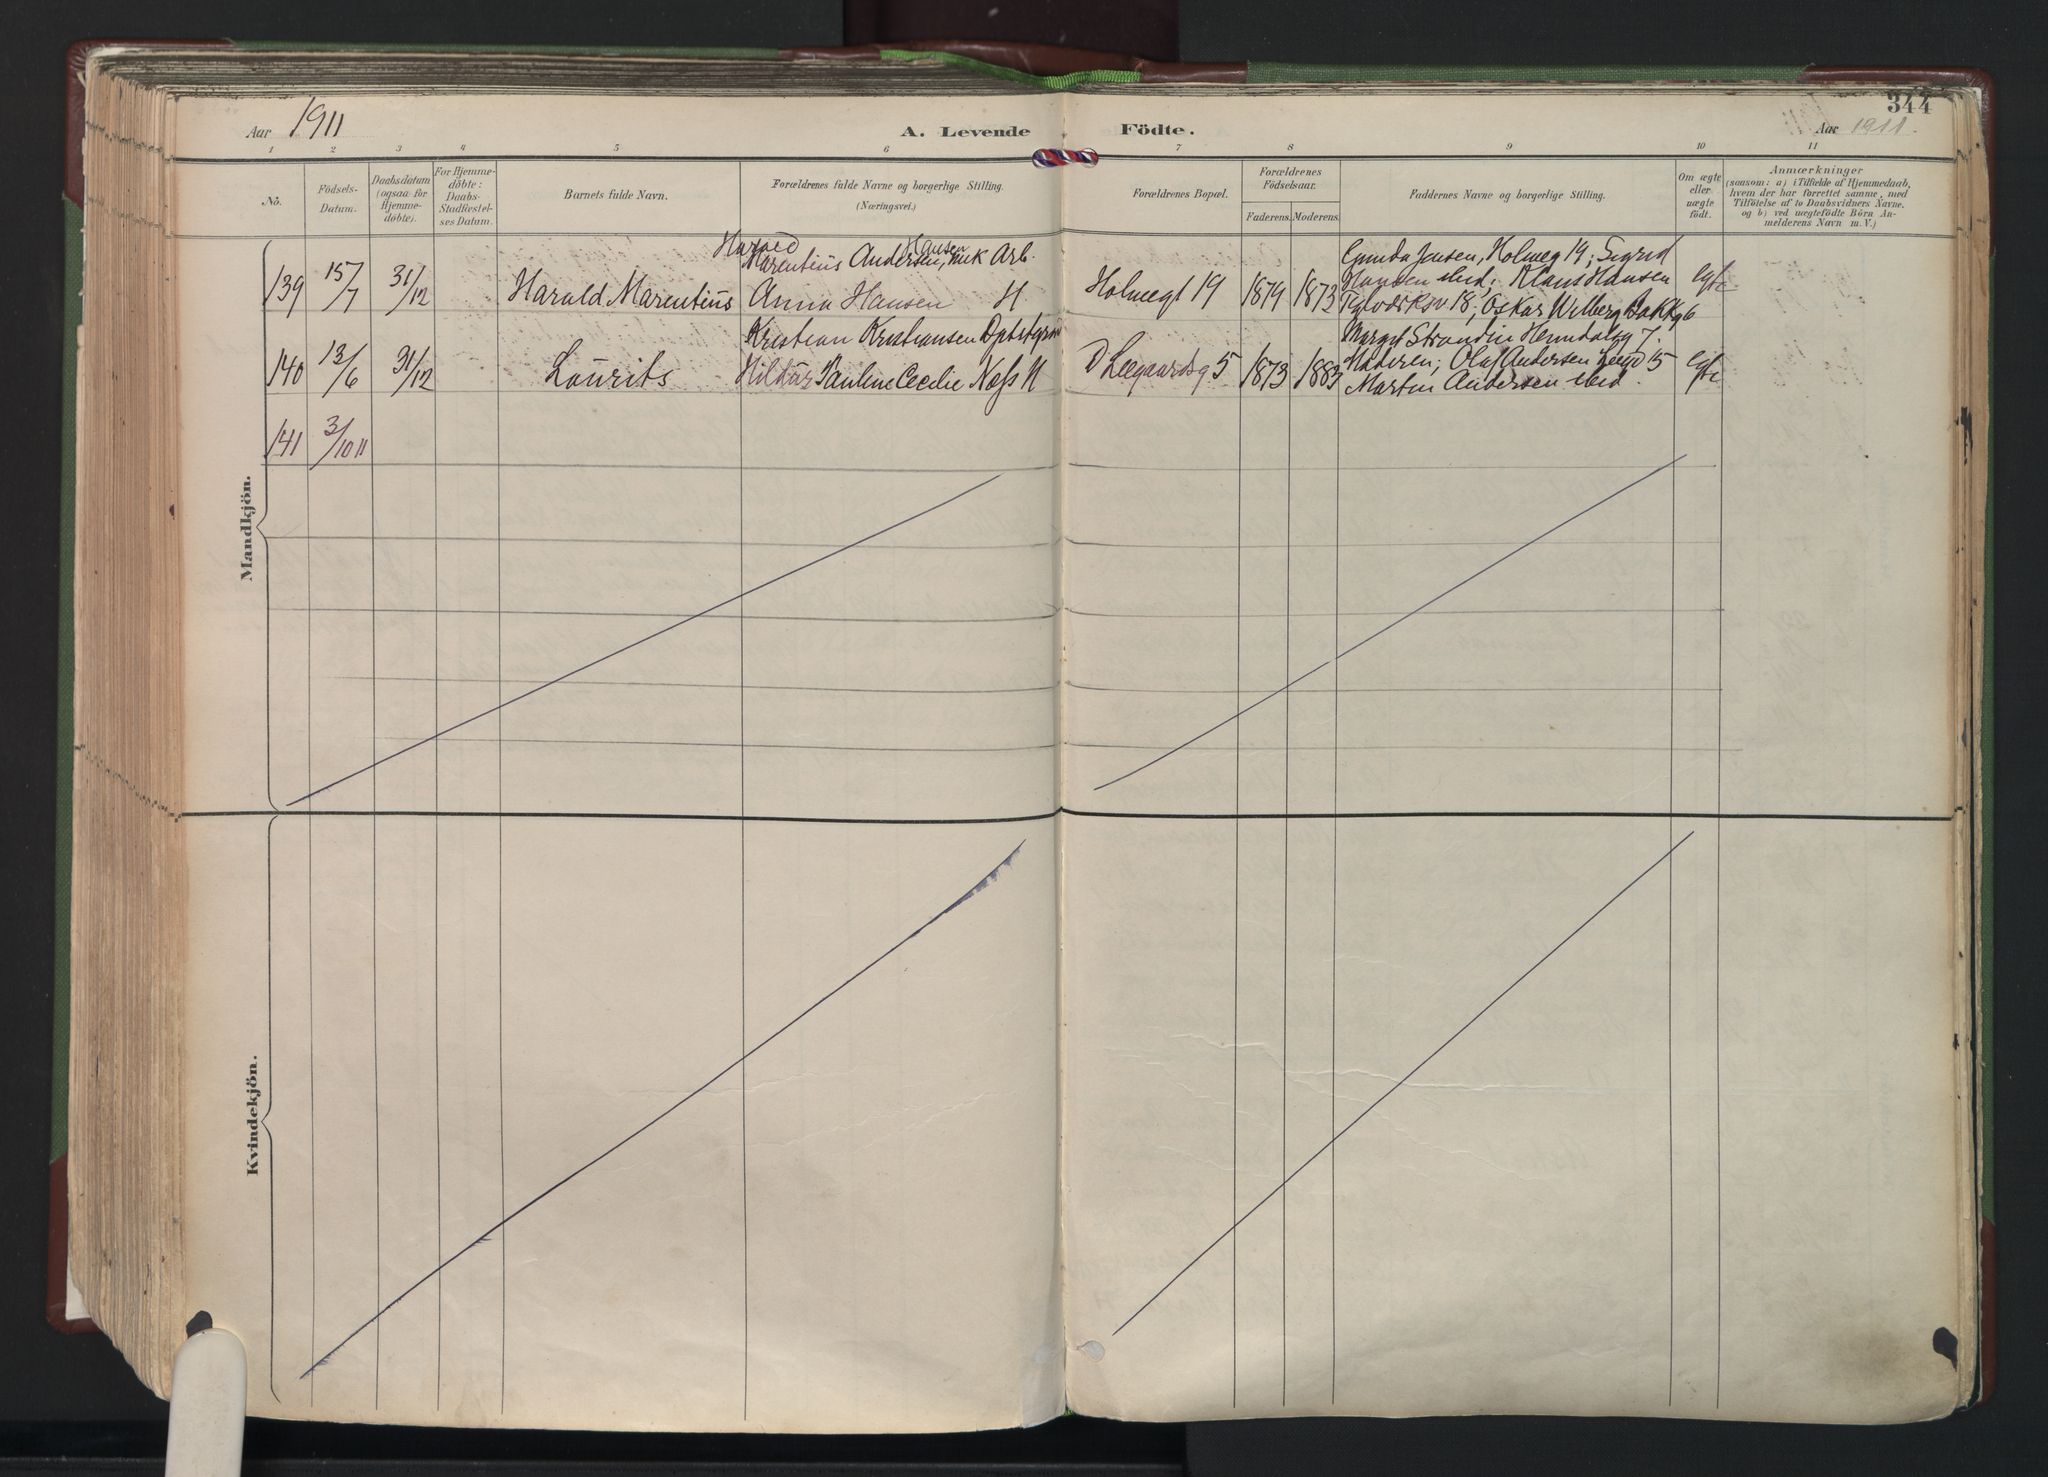 344
Aar 1911 A. Levende Födte. Aar 1911.
1 2 3 4 5 6 7 8 9 10 11
No. Födsels-Datum. Daabsdatum (ogsaa for Hjemme-döbte). For Hjemme-döbte: Daabs-Stadfestel-ses Datum. Barnets fulde Navn. Forældrenes fulde Navne og borgerlige Stilling. (Næringsvei.) Forældrenes Bopæl. Forældrenes Födselsaar. Faderens. Moderens. Faddernes Navne og borgerlige Stilling. Om ægte eller uægte født. Anmærkninger
(sansom: a) i Tilfælde af Hjemmedaab,
hvem der har forrettet samme, med
Tilföielse af to Daabsvidners Navne,
og b) ved uegtefödte Börn An-
melderens Navn m. V.)
Mandkjön.
Harald Hansen
Marentius Andersen, Arb. Gunda Jensen, Holmeg 19; Sigrid
139 15/7 31/12 Harald Marentius Anna Hansen H Holmegt 19 1879 1873 Hansen ibid; Klaus Hansen egte
18; Oskar Wilberg Bakkg 6
Kristian Kristiansen Margit Strand
140 13/6 31/12 Lourits Hildur Pauline Cecilie Næss H D Leegaardsg 5 1873 1883 Moderen; Olaf Andersen Leegd 15 egte
Martin Andersen ibid.
141 3/10 11
Kvindekjön.